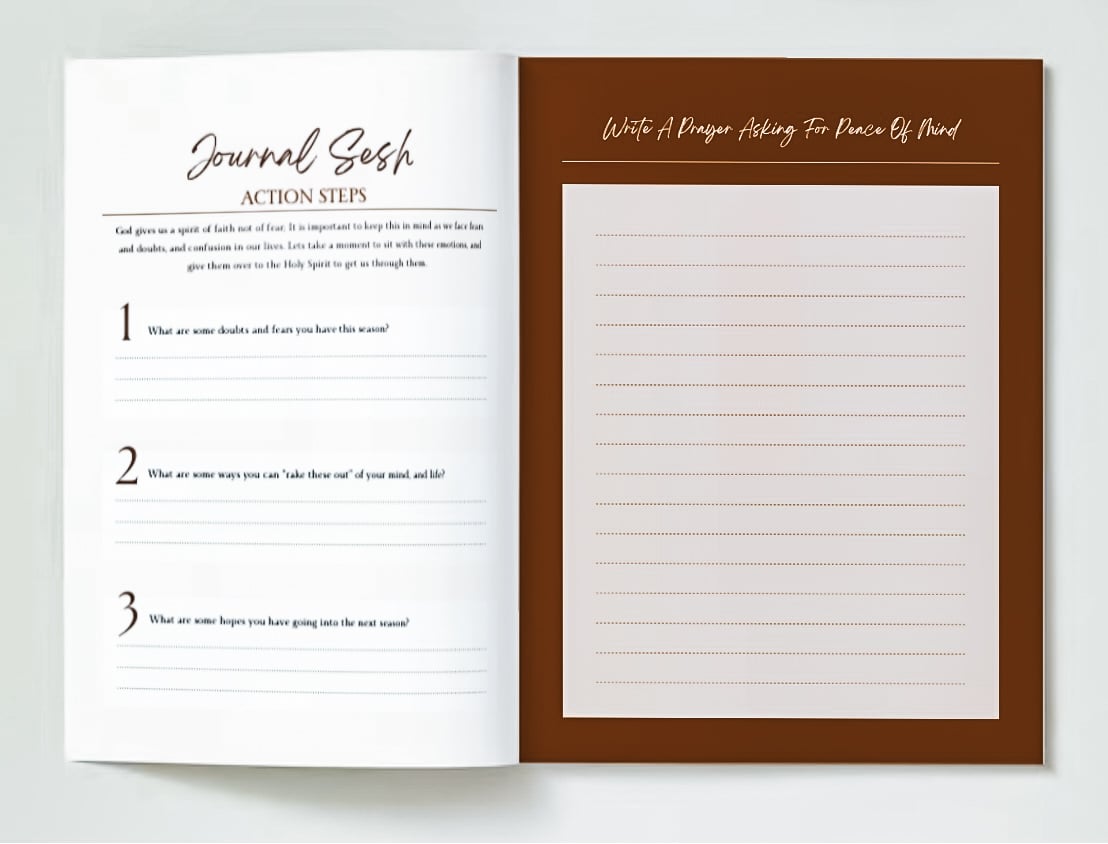 Journal Sesh
ACTION STEPS
God gives us a spirit of faith not of fear. It is important to keep this in mind as we face fears
and doubts, and confusion in our lives. Lets take a moment to sit with these emotions, and
give them over to the Holy Spirit to get us through them.
1 What are some doubts and fears you have this season?
2 What are some ways you can "take these out" of your mind, and life?
3 What are some hopes you have going into the next season?
Write A Prayer Asking For Peace Of Mind